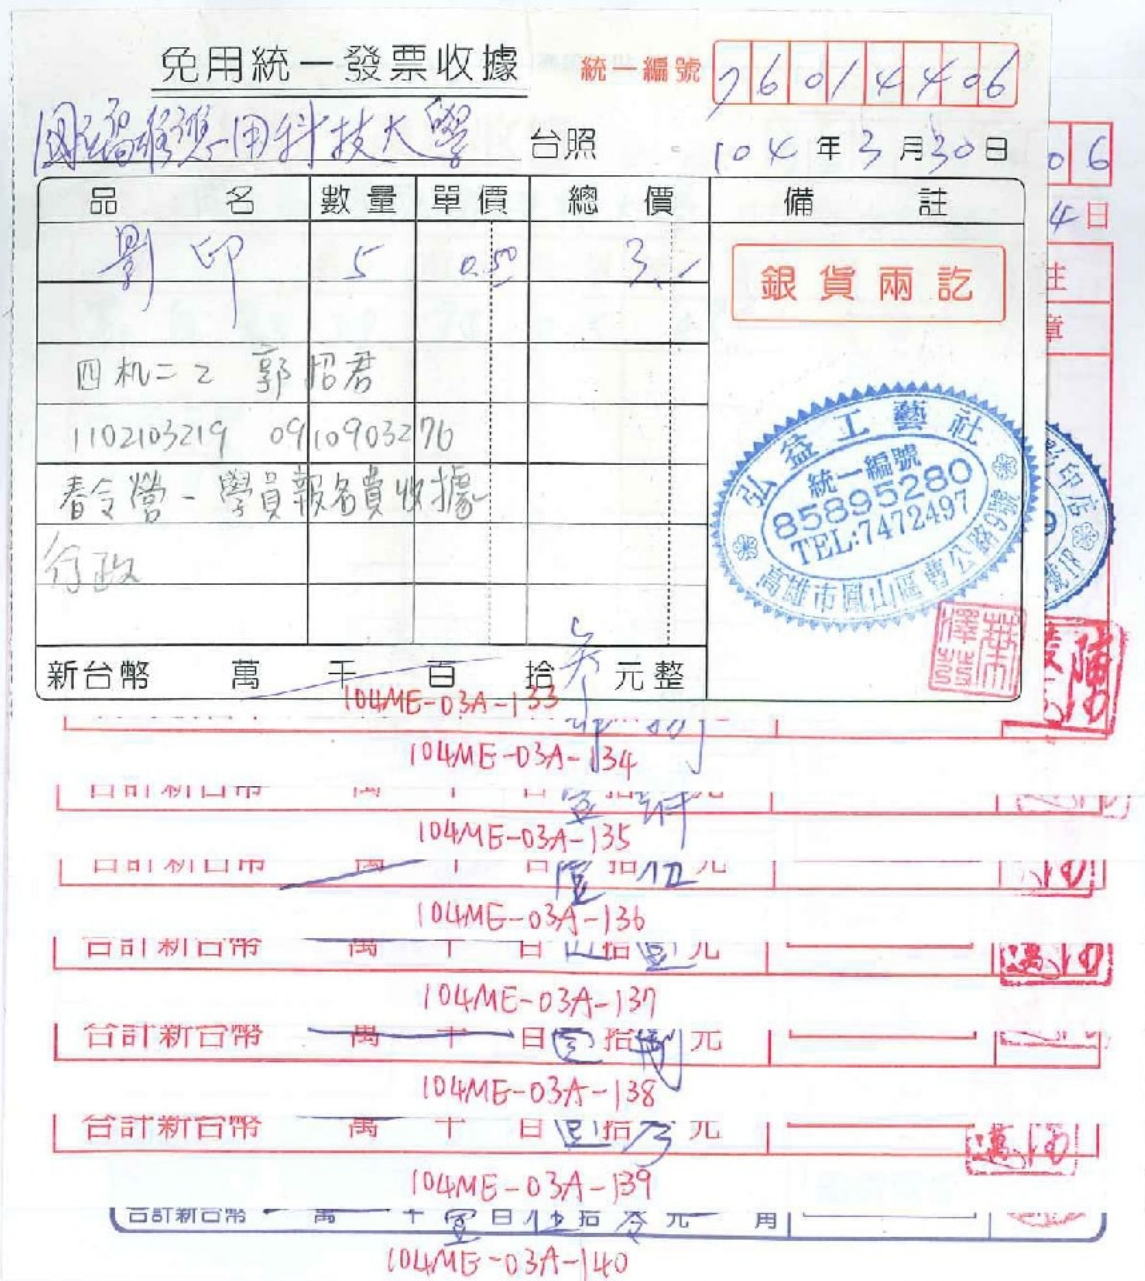 免用統一發票收據 統一編號 76014406
國立高雄應用科技大學 台照 104年3月30日
品名 數量 單價 總價 備註
影印 5 0.50 3.-
銀貨兩訖
四机二乙 郭昭君
1102103219 0910903276
春令營-學員報名費收據
行政
弘益工藝社
統一編號
85895280
TEL:7472497
高雄市鳳山區曹公路9號
新台幣 萬 千 百 拾 元整
06
4日
章
影印店
104ME-03A-133
104ME-03A-134
合計新台幣 萬 千 百 拾 元
104ME-03A-135
合計新台幣 萬 千 百 拾伍元
104ME-03A-136
合計新台幣 萬 千 百 拾 元
104ME-03A-137
合計新台幣 萬 千 百 拾 元
104ME-03A-138
合計新台幣 萬 千 百 拾 元
104ME-03A-139
合計新台幣 萬 千 百伍拾零元 角
104ME-03A-140